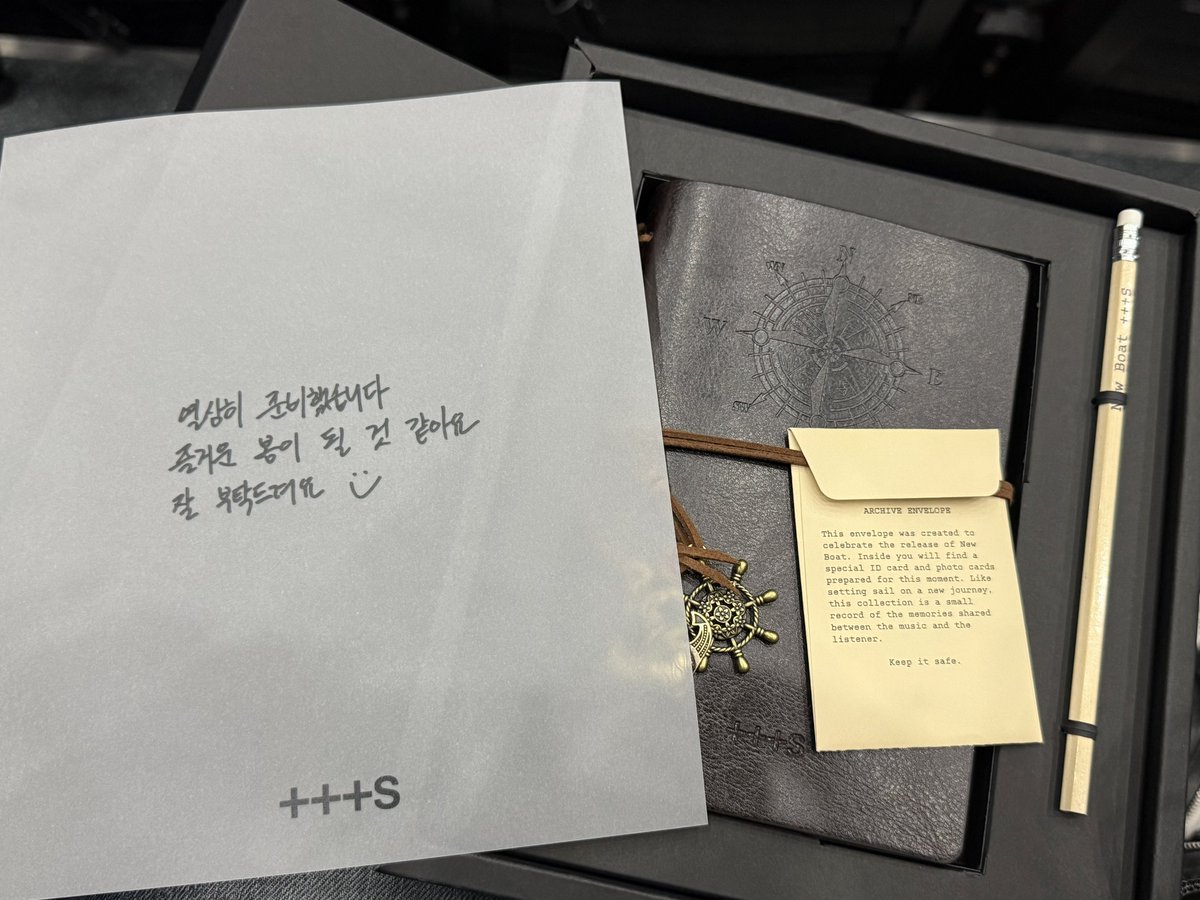 열심히 준비했습니다
즐거운 봄이 될 것 같아요
잘 부탁드려요 :)
+++S
N
NE
E
W
SW
+++S
ARCHIVE ENVELOPE
This envelope was created to
celebrate the release of New
Boat. Inside you will find a
special ID card and photo cards
prepared for this moment. Like
setting sail on a new journey,
this collection is a small
record of the memories shared
between the music and the
listener.
Keep it safe.
New Boat +++S